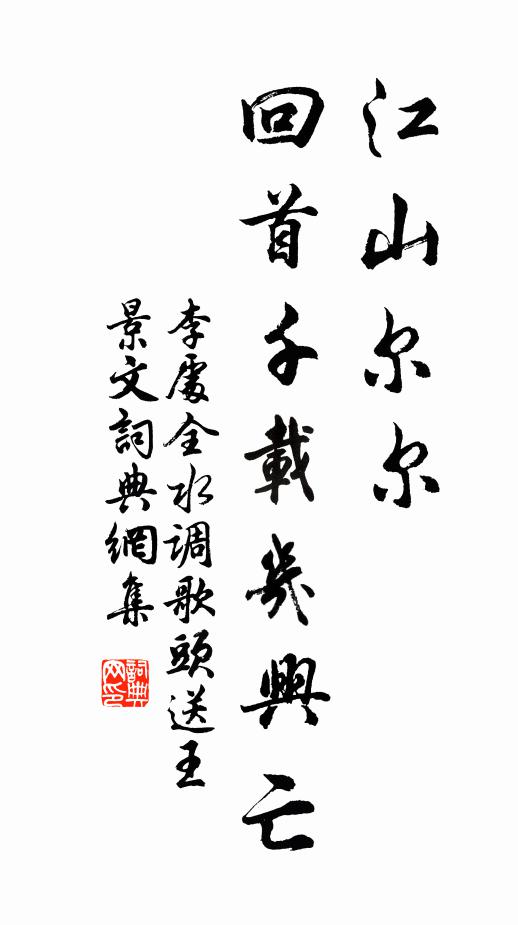 江山尔尔
回首千載幾興亡
李處全水调歌頭送王
景文詞典網集
詞典网印